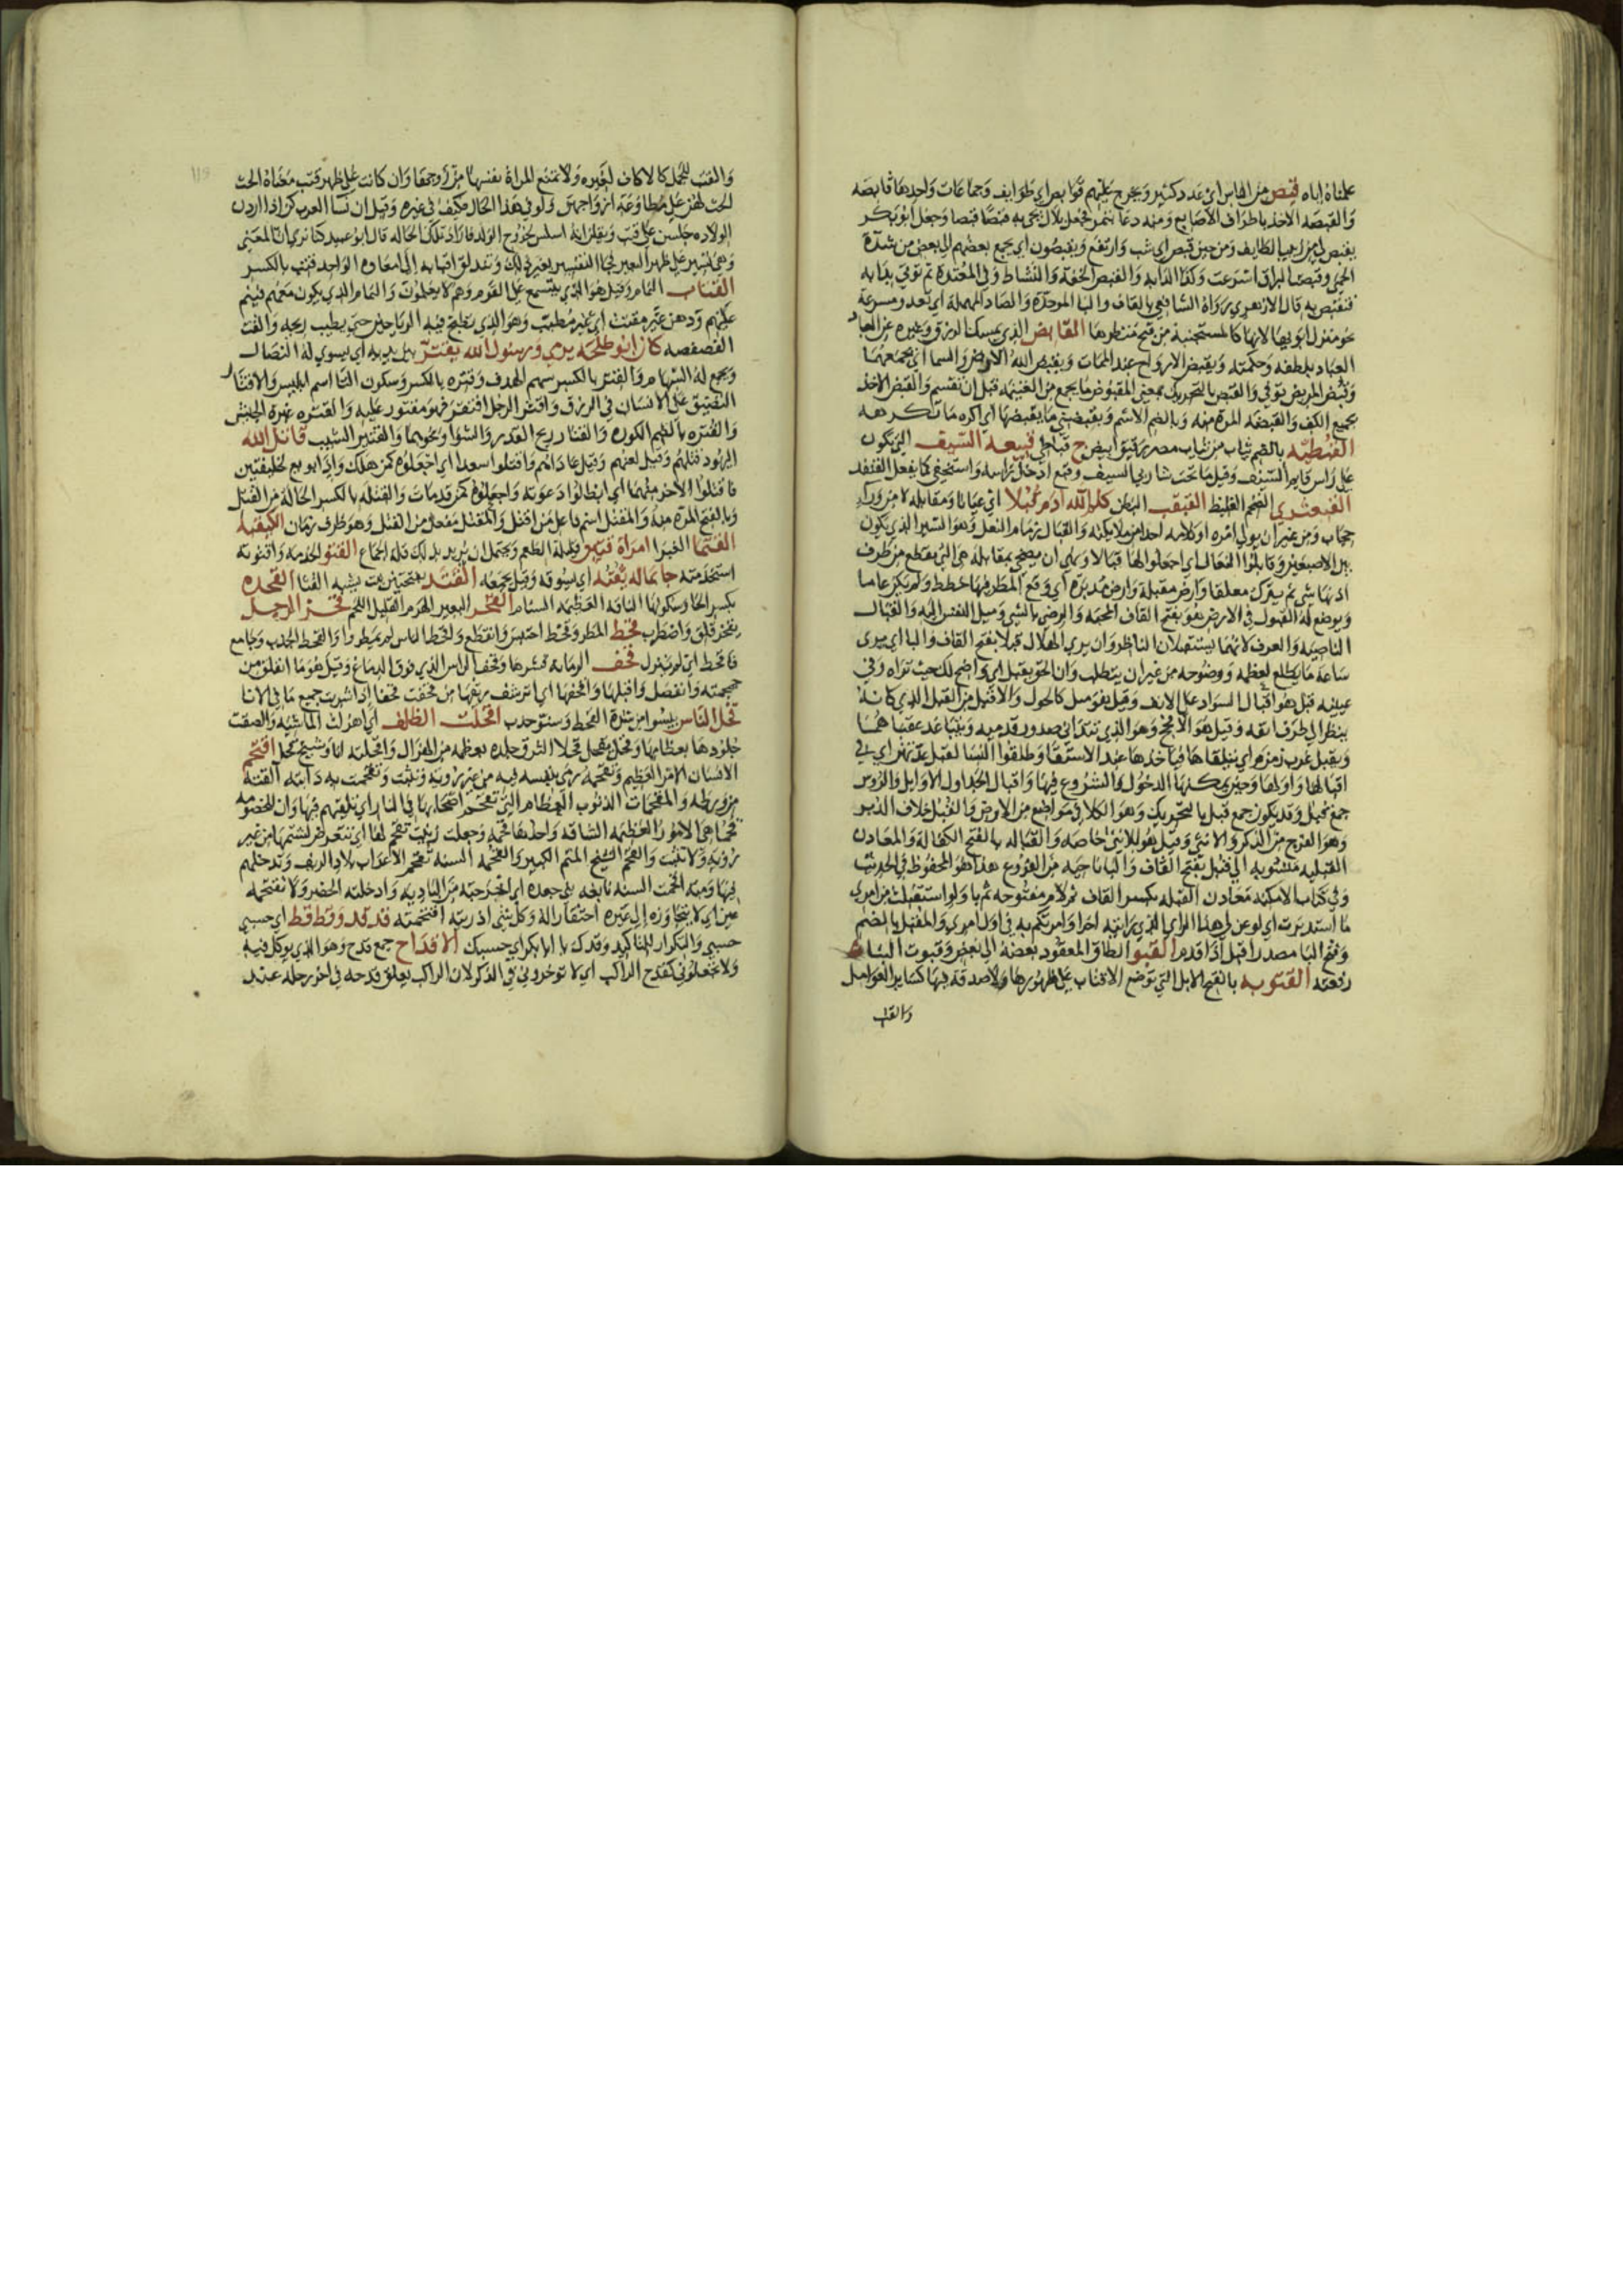 علمناه اياه قبص من الناس اي عدد كثير ويخرج عليهم قوابص اي طوايف وجماعات واحدها قابصه
والقبصة الاخذ باطراف الاصابع ومنه دعا بتمر فجعل بلال يجي به قبصا قبصا وجعل ابو بكر
يقبص لي من زبيب الطايف ومن حين قبص اي شب وارتفع ويقبصون اي يجمع بعضهم الى بعض من شدة
الحمى وقبصت البراق اسرعت وكذا الدابه والقبص الخفة والنشاط وفي المعتدة ثم توتى بدابه
فتقبص به قال الازهري رواه الشافعي بالقاف والبا الموحدة والصاد المهملة اي تعدو مسرعة
نحو منزل ابويها لانها كالمستحيية من قبح منظرها القابض الذي يمسك الرزق وغيره عن العباد
العباد بلطفه وحكمته ويقبض الارواح عند الممات ويقبض الله الارض والسما اي يجمعهما
وقبض المريض توفي والقبض بالتحريك بمعنى المقبوض ما يجمع من الغنيمه قبل ان تقسم والقبض الاخذ
بجميع الكف والقبضه المرة منه وبالضم الاسم ويقبضني ما يقبضها اي اكره ما تكرهه
القبطيه بالضم ثياب من ثياب مصر رقيق ابيض ج قباطي قبيعة السيف التي تكون
على راس قايم السيف وقيل ما تحت شاربي السيف وقبع ادخل راسه واستخفى كما يفعل القنفد
القبعثري الضخم الغليظ القبقب البطن كلم الله ادم قبلا اي عيانا ومقابلة لا من ورا
حجاب ومن غير ان يولي امره او كلامه احدا من ملايكته والقبال زمام النعل وهو السير الذي يكون
بين الاصبعين وقابلوا النعال اي اجعلوا لها قبالا ونهى ان يضحى بمقابلة هي التي يقطع من طرف
اذنها شي ثم يترك معلقا وارض مقبلة وارض مدبرة اي وقع المطر فيها خططا ولم يكن عاما
ويوضع له القبول في الارض هو بفتح القاف المحبة والرضى بالشي وميل النفس اليه والقبال
الناصيه والعرف لانهما يستقبلان الناظر وان يرى الهلال قبلا بفتح القاف والبا اي يرى
ساعة ما يطلع لعظمه ووضوحه من غير ان يتطلب وان الحق بقبل اي واضح لك حيث تراه وفي
عينيه قبل هو اقبال السواد على الانف وقيل هو ميل كالحول والاقبل من القبل الذي كانه
ينظر الى طرف انفه وقيل هو الافحج وهو الذي تتدانى صدور قدميه ويتباعد عقباهما
وهو الفرج من الذكر والانثى وقيل هو للانثى خاصه والقباله بالفتح الكفالة والمعادن
القبليه منسوبه الى قبل بفتح القاف والبا ناحيه من الفرع هذا هو المحفوظ في الحديث
وفي كتاب الامكنه معادن القبله بكسر القاف ثم لام مفتوحه ثم با ولو استقبلت من امري
ما استدبرت اي لو عن لي هذا الراي الذي رايته اخرا وامرتكم به في اول امري والمقبل بالضم
وفتح البا مصدر اقبل اذا قدم القبو الطاق المعقود بعضه الى بعض وقبوت البنا
رفعته القتوبه بالفتح الابل التي توضع الاقتاب على ظهورها ولا صدقة فيها كساير العوامل
والقتب
والقتب للجمل كالاكاف لغيره ولا تمنع المراة نفسها من زوجها وان كانت على ظهر قتب معناه الحث
الحث لهن على مطاوعة ازواجهن ولو في هذا الحال فكيف في غيره وقيل ان نسا العرب كن اذا اردن
الولاده جلسن على قتب ويقلن انه اسلس لخروج الولد فاراد تلك الحاله قال ابو عبيد كنا نرى ان المعنى
وهي تسير على ظهر البعير فجا التفسير بغير ذلك وتندلق اقتابه اي امعاوه الواحد قتب بالكسر
القتات النمام وقيل هو الذي يتسمع على القوم وهم لا يعلمون والنمام الذي يكون معهم فينم
عليهم ودهن غير مقتت اي غير مطيب وهو الذي يطبخ فيه الرياحين حتى يطيب ريحه والقت
الفصفصه كان ابو طلحه يرمي ورسول الله يقتر بين يديه اي يسوي له النصال
ويجمع له السهام والقتر بالكسر سهم الهدف وقتره بالكسر وسكون التا اسم ابليس والاقتار
التضييق على الانسان في الرزق واقتر الرجل افتقر فهو مقتور عليه والقتره غبرة الجيش
والقتره بالضم الكوة والقتار ريح القدر والشوا ونحوهما والقتير الشيب قاتل الله
اليهود قتلهم وقيل لعنهم وقيل عاداهم واقتلوا سعدا اي اجعلوه كمن هلك واذا بويع لخليفتين
فاقتلوا الاخر منهما اي ابطلوا دعوته واجعلوه كمن قد مات والقتلة بالكسر الحالة من القتل
وبالفتح المرة منه والمقتتل اسم فاعل من اقتتل والمقتل مفعل من القتل وهو ظرف زمان
القتما الغبرا امراة قتين قليلة الطعم ويحتمل ان يريد بذلك قلة الجماع القتو الخدمه واقتويته
استخدمته جا بماله يقثه اي يسوقه وقيل يجمعه القثد بفتحتين نبت يشبه القثا القحده
بكسر الحا وسكونها الناقه العظيمه السنام القحر البعير الهرم القليل اللحم قحز الرجل
يقحز قلق واضطرب قحط المطر وقحط احتبس وانقطع واقحط الناس لم يمطروا والقحط الجدب وجامع
فاقحط اي لم ينزل قحف الرمانه قشرها وقحف الراس الذي فوق الدماغ وقيل هو ما انفلق من
جمجمته وانفصل واقبلها واقحفها اي اترشف ريقها من قحفت قحفا اذا شربت جميع ما في الانا
قحل الناس يبسوا من شدة القحط وسنون جدب اقحلت الظلف اي اهزلت الماشيه والصقت
جلودها بعظامها وقحل يقحل قحلا التزق جلده بعظمه من الهزال واقحلته انا وشيخ قحل اقتحم
الانسان الامر العظيم وتقحمه رمى بنفسه فيه من غير رويه وتثبت وتقحمت به دابته القته
في ورطه والمقحمات الذنوب العظام التي تقحم اصحابها في النار اي تلقيهم فيها وان للخصومه
قحما هي الامور العظيمه الشاقه واحدها قحمه وجعلت زينب تقحم لها اي تتعرض لشتمها من غير
رويه ولا تثبت والقحم الشيخ الهم الكبير والقحمه السنه تقحم الاعراب بلاد الريف وتدخلهم
فيها ومنه اقحمت السنه نابغه بني جعده اي اخرجته من الباديه وادخلته الحضر ولا تقتحمه
عين اي لا تتجاوزه الى غيره احتقارا له وكل شي ازدريته اقتحمته قد قد وقط قط اي حسبي
حسبي والتكرار للتاكيد وقدك يا ابا بكر اي حسبك الاقداح جمع قدح وهو الذي يوكل فيه
ولا تجعلوني كقدح الراكب اي لا توخروني في الذكر لان الراكب يعلق قدحه في اخر رحله عند